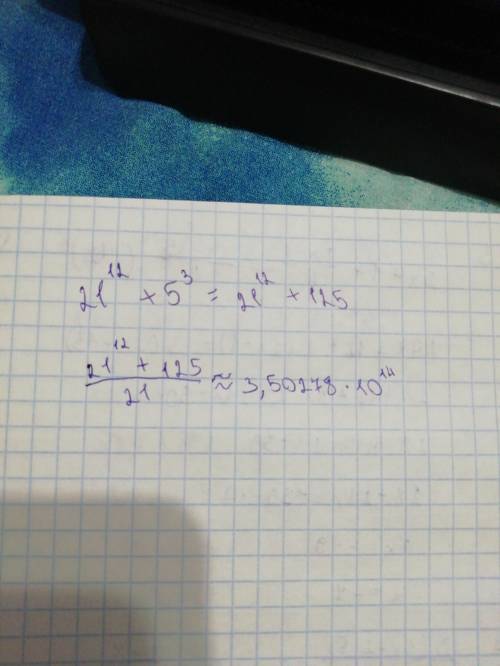 21¹² + 5³ = 21¹² + 125
(21¹² + 125)/21 ≈ 3,50278 · 10¹⁴